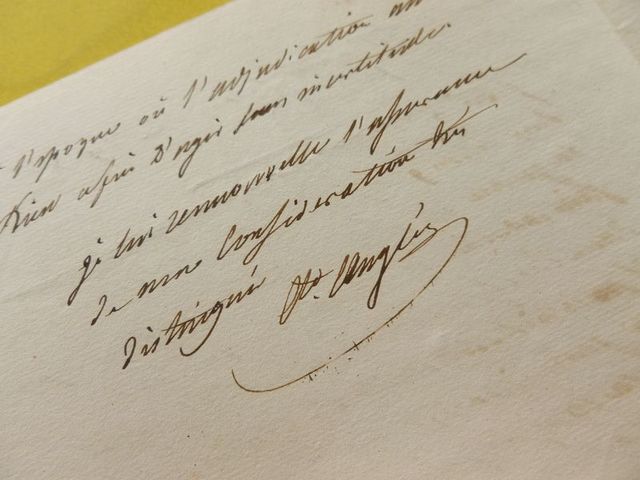 l'epoque où l'adjudication au
Rien afin d'agir sans incertitude.
je lui renouvelle l'assurance
de ma Considération très
distingué
Ct. Anglès